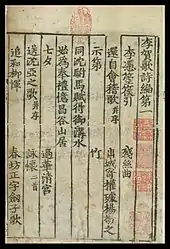 李賀歌詩編第一
李憑箜篌引
殘絲曲
還自會稽歌并序
出城寄權璩楊敬之
示弟
竹
同沈駙馬賦得御溝水
始爲奉禮憶昌谷山居
七夕
過華清宮
送沈亞之歌并序
詠懷二首
追和柳惲
春坊正字劍子歌